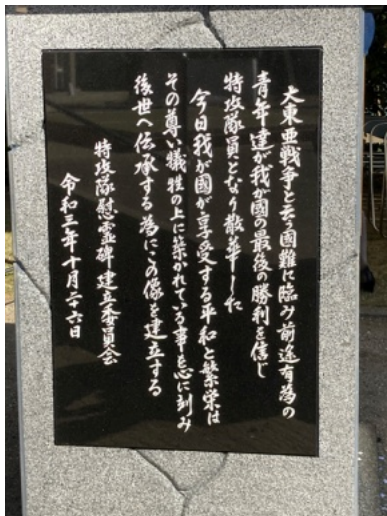 大東亜戦争と云う國難に臨み前途有為の
青年達が我が國の最後の勝利を信じ
特攻隊員となり散華した
今日我が國が享受する平和と繁栄は
その尊い犠牲の上に築かれている事を心に刻み
後世へ伝承する為にこの像を建立する
特攻隊慰霊碑建立委員会
令和三年十月二十六日